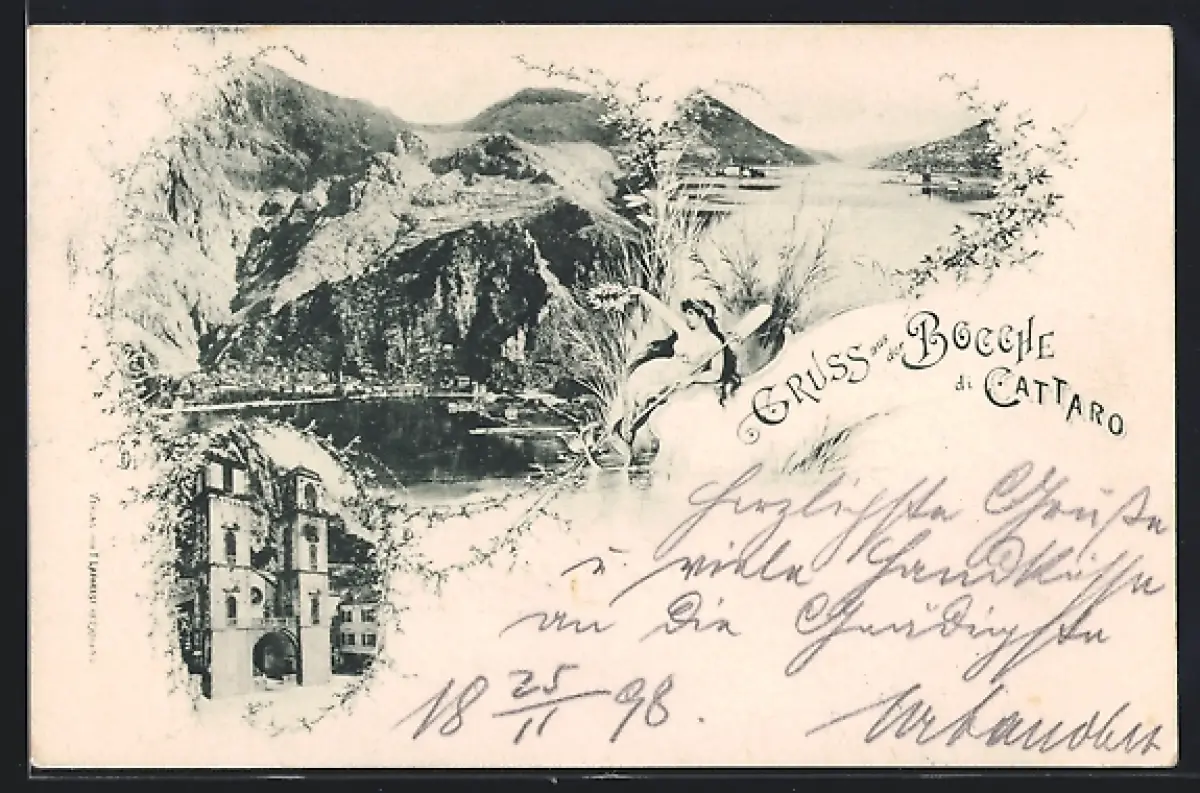 GRUSS aus der BOCCHE
di CATTARO
herzlichste Grüße
u. viele Handküsse
an die Gnädigste
18 25/11 98.